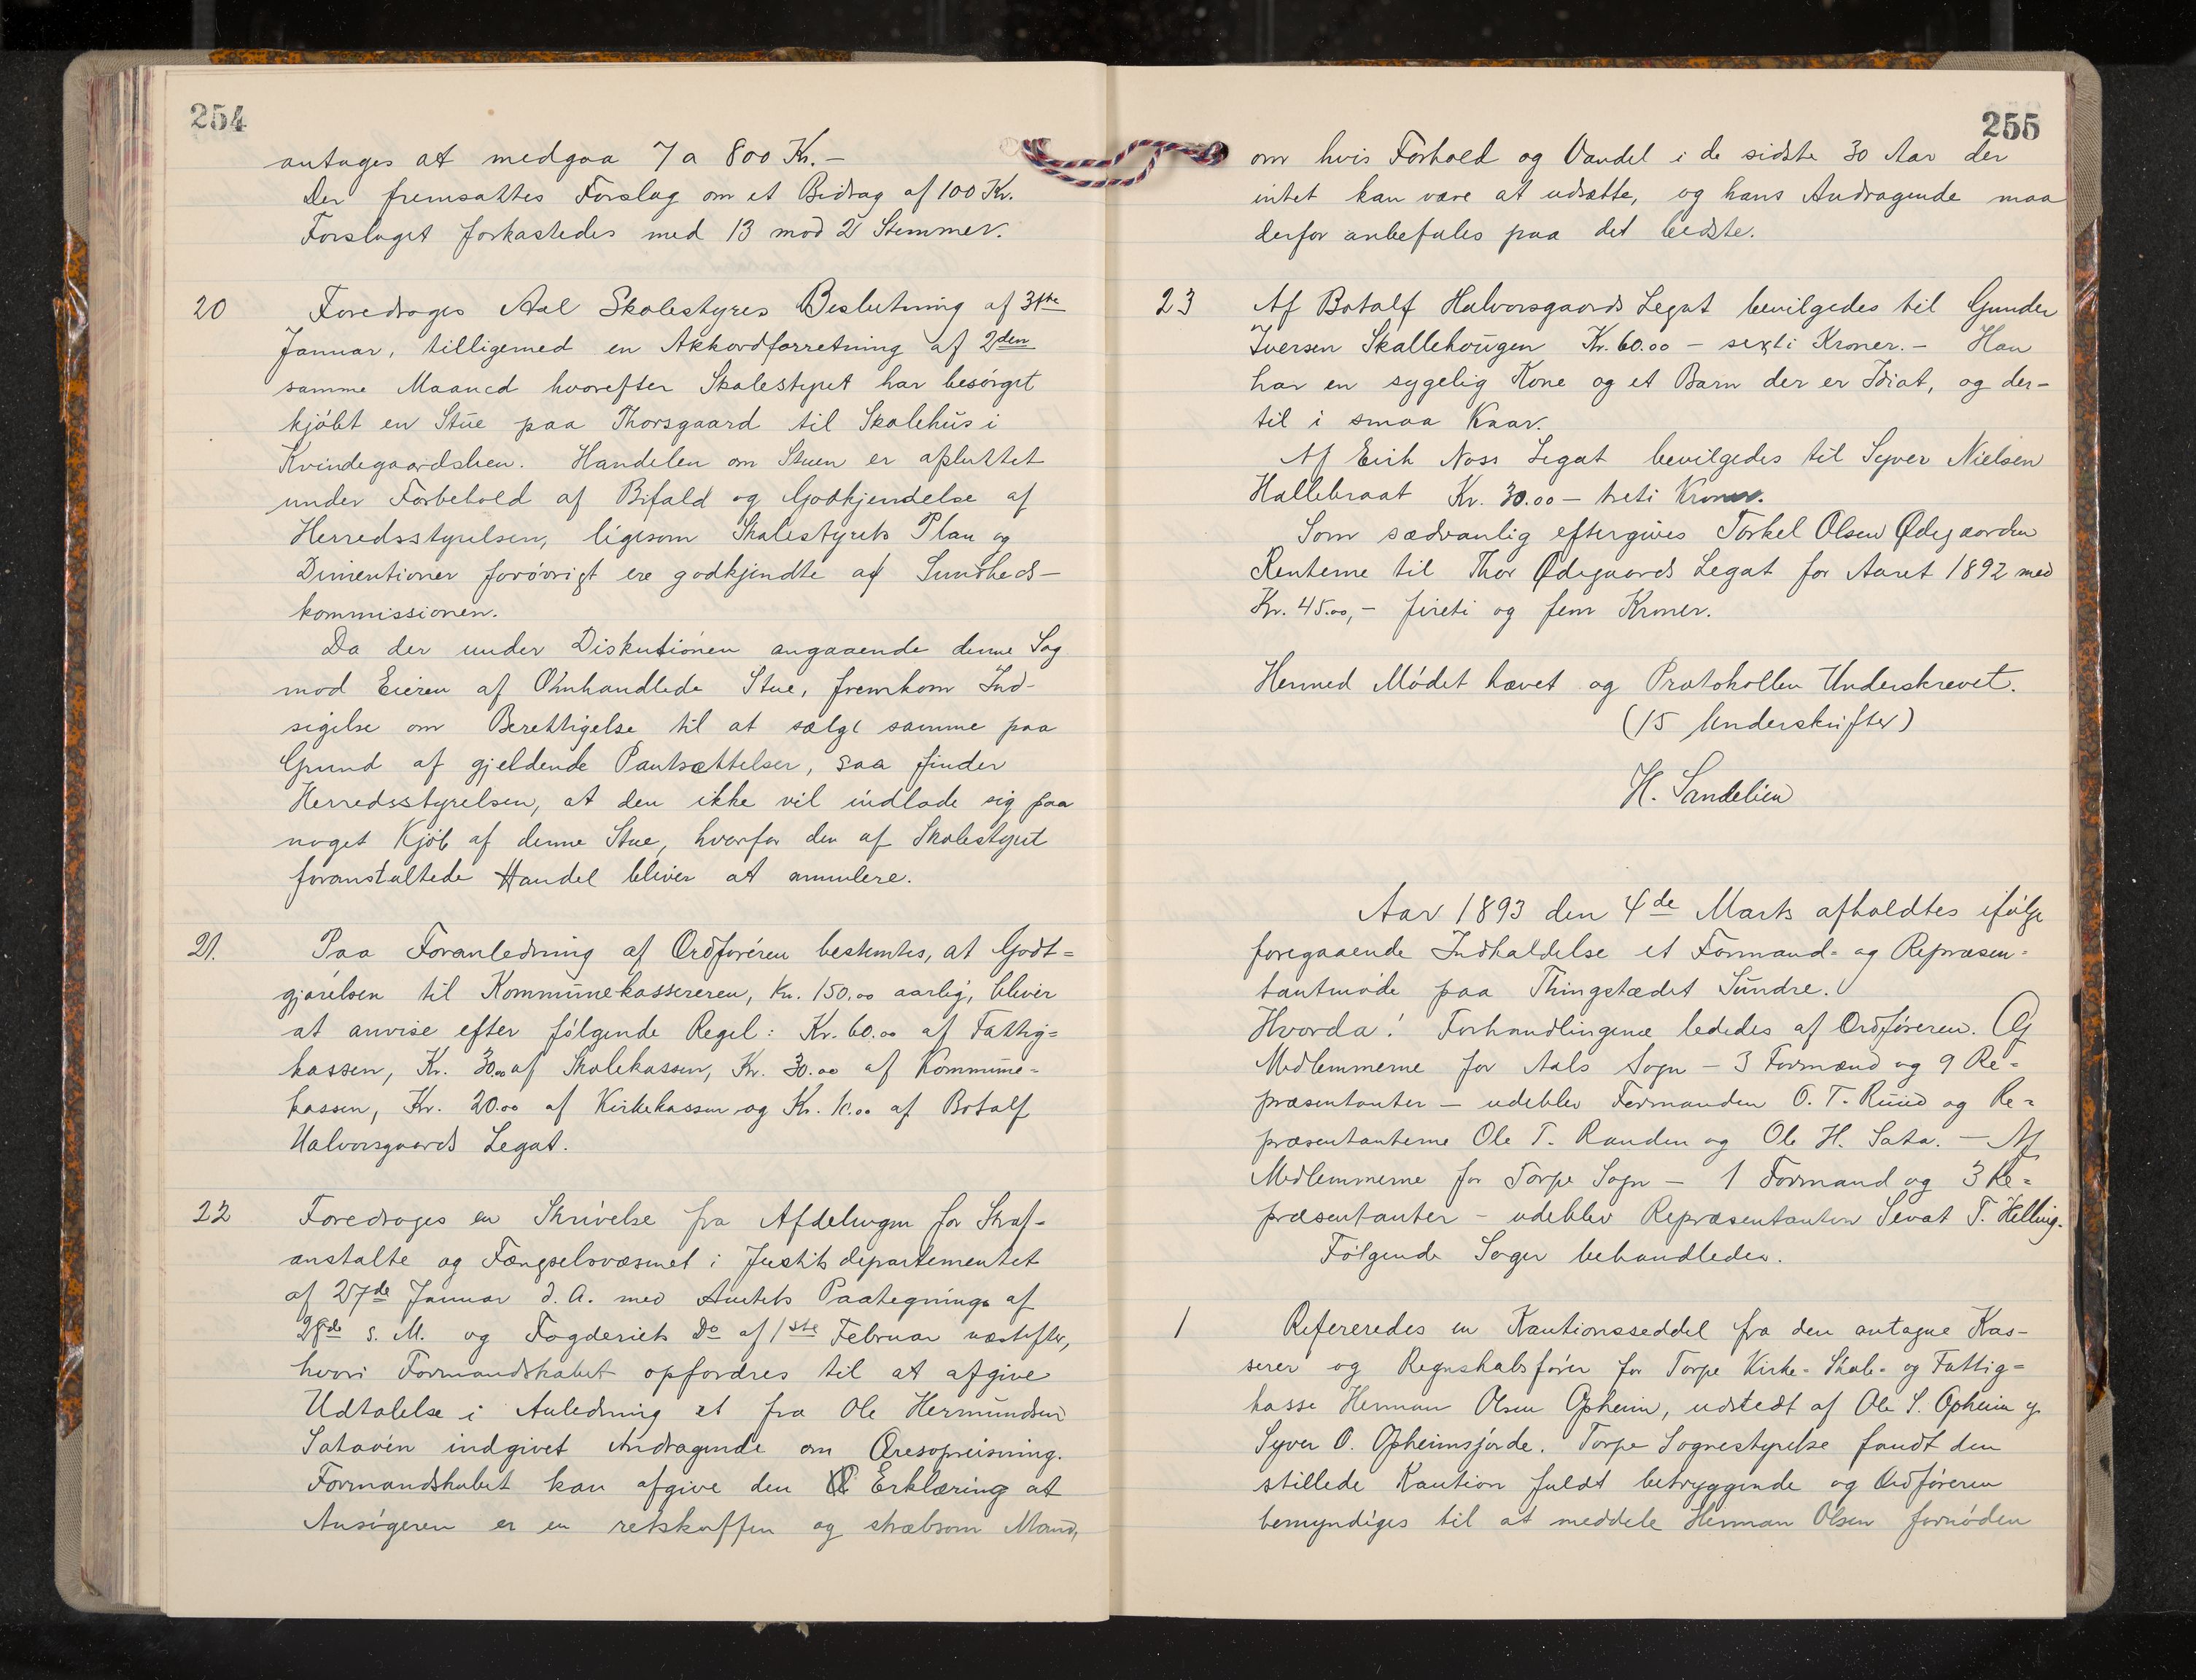 254
antages at medgaa 7 a 800 Kr. –
Der fremsattes Forslag om et Bidrag af 100 Kr.
Forslaget forkastedes med 13 mod 2 Stemmer.
20 Foredroges Aal Skolestyres Beslutning af 31te
Januar, tilligemed en Akkordforretning af 2den
samme Maaned hvorefter Skolestyret har besörget
kjöbt en Stue paa Thorsgaard til Skolehus i
Kvindegaardslien. Handelen om Stuen er afsluttet
under Forbehold af Bifald og Godkjendelse af
Herredsstyrelsen, ligesom Skolestyrets Plan og
Dimentioner forövrigt ere godkjendte af Sundheds-
kommissionen.
Da der under Diskutionen angaaende denne Sag
mod Eieren af Omhandlede Stue, fremkom Ind-
sigelse om Berettigelse til at sælge samme paa
Grund af gjeldende Pantsættelser, saa finder
Herredsstyrelsen, at den ikke vil indlade sig paa
noget Kjöb af denne Stue, hvorfor den af Skolestyret
foranstaltede Handel bliver at annulere.
21. Paa Foranledning af Ordföreren bestemtes, at Godt=
gjörelsen til Kommunekassereren, Kr. 150.00 aarlig, bliver
at anvise efter fölgende Regel: Kr. 60.00 af Fattig=
kassen, Kr. 30.00 af Skolekassen, Kr. 30.00 af Kommune=
kassen, Kr. 20.00 af Kirkekassen og Kr. 10.00 af Botolf
Halvorsgaards Legat.
22 Foredroges en Skrivelse fra Afdelingen for Straf-
anstalte og Fængselsvæsenet i Justitsdepartementet
af 27de Januar d. A. med Amtets Paategning af
28de s. M. og Fogderiets Do af 1ste Februar næstefter,
hvori Formandskabet opfordres til at afgive
Udtalelse i Anledning et fra Ole Hermundsen
Sataöen indgivet Andragende om Æresopreisning.
Formandskabet kan afgive den Erklæring at
Ansögeren er en retskaffen og stræbsom Mand,
255
om hvis Forhold og Vandel i de sidste 30 Aar der
intet kan være at udsætte, og hans Andragende maa
derfor anbefales paa det bedste.
23 Af Botolf Halvorsgaards Legat bevilgedes til Gunder
Iversen Skallehougen Kr. 60.00 – sexti Kroner. – Han
har en sygelig Kone og et Barn der er Idiot, og der-
til i smaa Kaar.
Af Erik Noss Legat bevilgedes til Syver Nielsen
Hallebraat Kr. 30.00 – treti Kroner.
Som sædvanlig eftergives Torkel Olsen Ødegaarden
Renterne til Thor Ødegaards Legat for Aaret 1892 med
Kr. 45.00, – fireti og fem Kroner.
Hermed Mödet hævet og Protokollen Underskrevet.
(15 Underskrifter)
H. Sandelien
Aar 1893 den 4de Marts afholdtes ifölge
foregaaende Indkaldelse et Formand- og Repræsen-
tantmöde paa Thingstædet Sundre.
Hvorda! Forhandlingene lededes af Ordföreren. Af
Medlemmerne for Aals Sogn – 3 Formænd og 9 Re=
præsentanter – udeblev Formanden O. T. Ruud og Re=
præsentanterne Ole T. Randen og Ole H. Sata. – Af
Medlemmerne for Torpe Sogn – 1 Formand og 3 Re=
præsentanter – udeblev Repræsentanten Sevat T. Helling.
Fölgende Sager behandledes.
1 Refereredes en Kautionsseddel fra den antagne Kas-
serer og Regnskabsförer for Torpe Kirke- Skole- og Fattig=
kasse Herman Olsen Opheim, udstedt af Ole S. Opheim og
Syver O. Opheimsjorde. Torpe Sognestyrelse fandt den
stillede Kaution fuldt betryggende og Ordföreren
bemyndiges til at meddele Herman Olsen fornöden